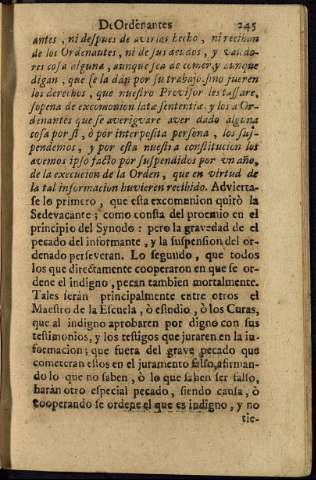 De Ordenantes 245
antes, ni despues de averlas hecho, ni reciban
de los Ordenantes, ni de sus deudos, y valedo-
res cosa alguna, aunque sea de comer, y aunque
digan, que se la dan por su trabajo, sino fueren
los derechos, que nuestro Provisor les tassare,
sopena de excomunion latæ sententiæ. y los a Or-
denantes que se averiguare aver dado alguna
cosa por si, ò por interposita persona, los sus-
pendemos, y por esta nuestra constitucion los
avemos ipso facto por suspendidos por vn año,
de la execucion de la Orden, que en virtud de
la tal informacion huvieren recibido. Advierta-
se lo primero, que esta excomunion quitò la
Sedevacante; como consta del proemio en el
principio del Synodo: pero la gravedad de el
pecado del informante, y la suspension del or-
denado perseveran. Lo segundo, que todos
los que directamente cooperaron en que se or-
dene el indigno, pecan tambien mortalmente.
Tales seràn principalmente entre otros el
Maestro de la Escuela, ò estudio, ò los Curas,
que al indigno aprobaren por digno con sus
testimonios, y los testigos que juraren en la in-
formacion; que fuera del grave pecado que
cometeran estos en el juramento falso, afirman-
do lo que no saben, ò lo que saben ser falso,
haràn otro especial pecado, siendo causa, ò
cooperando se ordene el que es indigno, y no
tie-